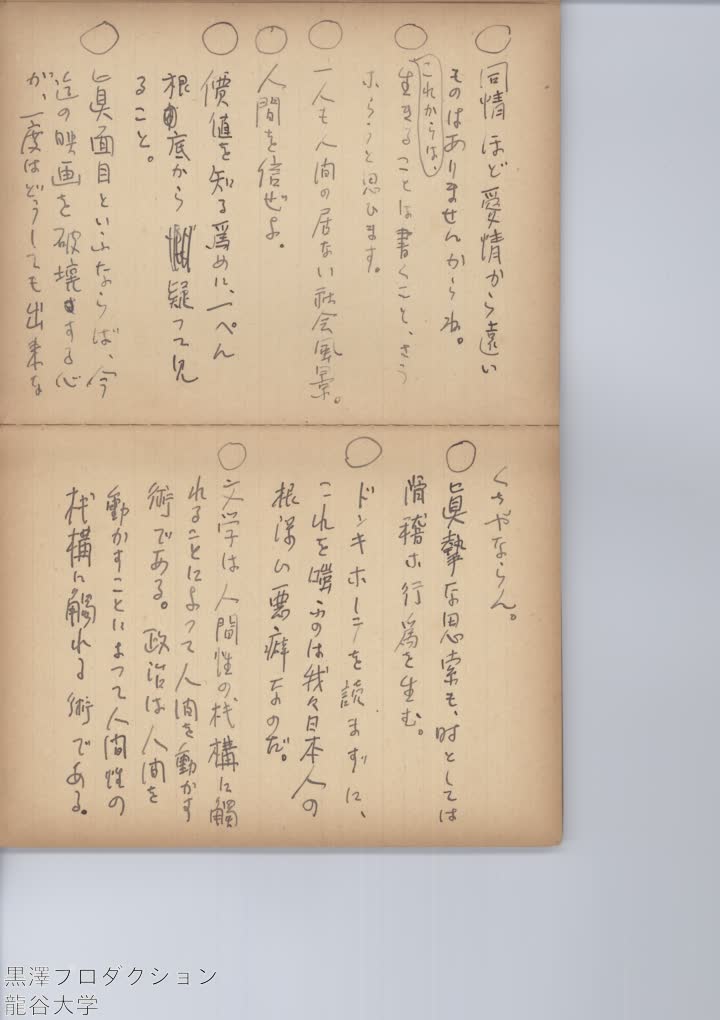 ○同情ほど愛情から遠い
ものはありませんからね。
○これからは、
生きることは書くこと、さう
ならうと思ひます。
○一人も人間の居ない社会風景。
○人間を信ぜよ。
○價値を知る爲めに、一ぺん
根底から疑つて見
ること。
○眞面目といふならば、今
迄の映画を破壊する心
が、一度はどうしても出来な
くちやならん。
○眞摯な思索も、時としては
滑稽な行爲を生む。
○ドンキホーテを読まずに、
これを嗤ふのは我々日本人の
根深い悪癖なのだ。
○文学は人間性の栈構に觸
れることによつて人間を動かす
術である。政治は人間を
動かすことによつて人間性の
栈構に觸れる術である。
黒澤プロダクション
龍谷大学